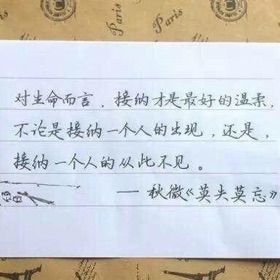 Paris
Paris
对生命而言，接纳才是最好的温柔，
不论是接纳一个人的出现，还是，
接纳一个人的从此不见。
——秋微《莫失莫忘》